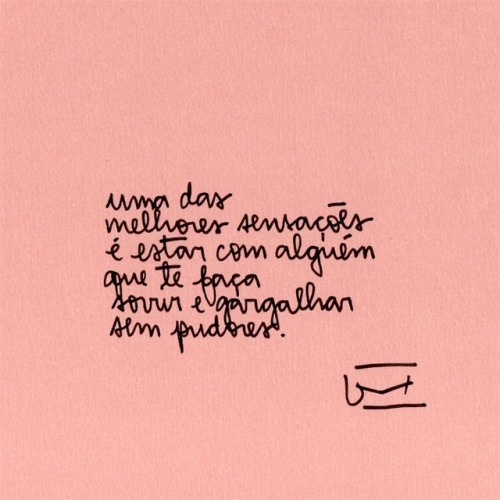 uma das
melhores sensações
é estar com alguém
que te faça
sorrir e gargalhar
sem pudores.